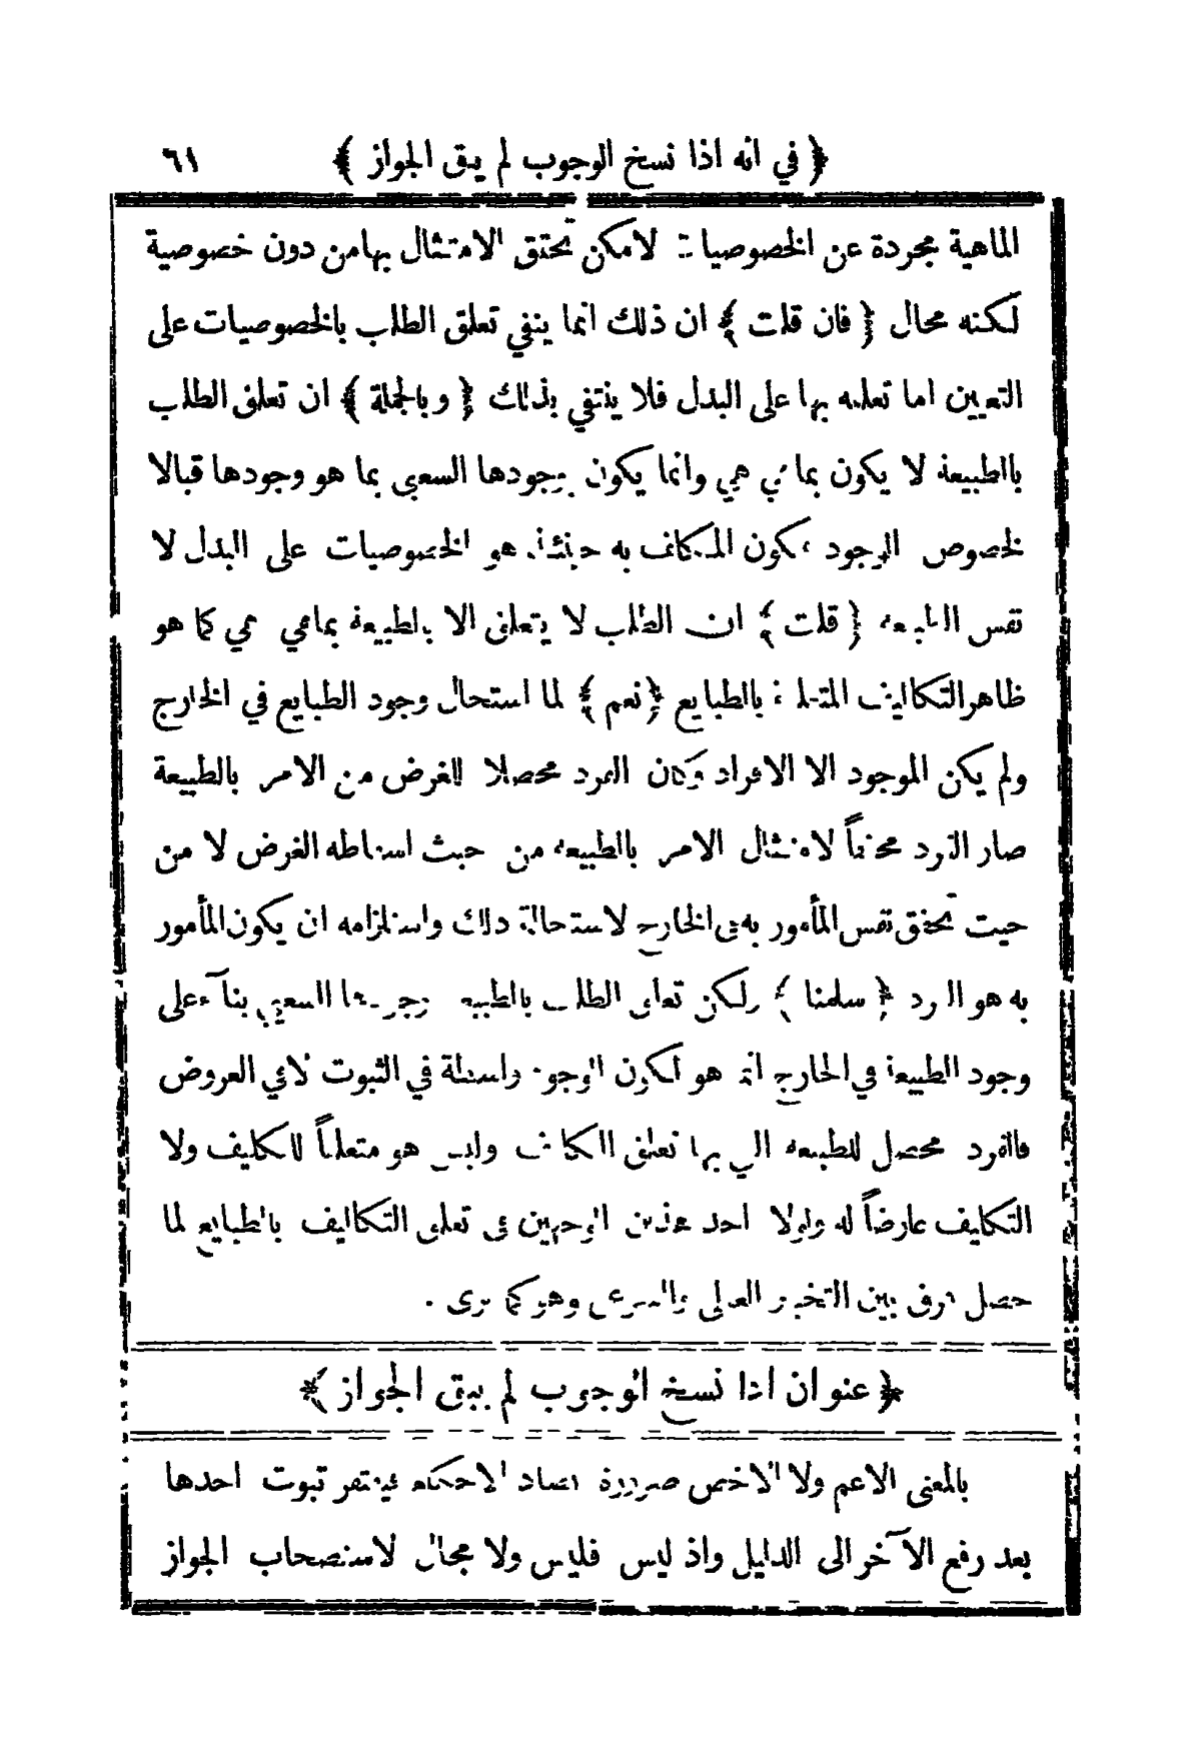 ﴿ في انه اذا نسخ الوجوب لم يبق الجواز ﴾ ٦١
الماهية مجردة عن الخصوصيات لامكن تحقق الامتثال بها من دون خصوصية
لكنه محال ﴿ فان قلت ﴾ ان ذلك انما ينفي تعلق الطلب بالخصوصيات على
التعيين اما تعلقه بها على البدل فلا ينتفي بذلك ﴿ وبالجملة ﴾ ان تعلق الطلب
بالطبيعة لا يكون بما هي هي وانما يكون بوجودها السعي بما هو وجودها قبالا
لخصوص الوجود فيكون المكلف به حينئذ هو الخصوصيات على البدل لا
نفس الطبيعة ﴿ قلت ﴾ ان الطلب لا يتعلق الا بالطبيعة بماهي هي كما هو
ظاهر التكاليف المتعلقة بالطبايع ﴿ نعم ﴾ لما استحال وجود الطبايع في الخارج
ولم يكن الموجود الا الافراد وكان الفرد محصلا للغرض من الامر بالطبيعة
صار الفرد محققاً لامتثال الامر بالطبيعة من حيث اسقاطه الغرض لا من
حيث تحقق نفس المأمور به في الخارج لاستحالة ذلك واستلزامه ان يكون المأمور
به هو الفرد ﴿ سلمنا ﴾ ولكن تعلق الطلب بالطبيعة بوجودها السعي بناءً على
وجود الطبيعة في الخارج انما هو لكون الوجود واسطة في الثبوت لا في العروض
فالفرد محصل للطبيعة التي بها تعلق التكليف وليس هو متعلقاً للتكليف ولا
التكليف عارضاً له ولولا احد هذين الوجهين في تعلق التكاليف بالطبايع لما
حصل فرق بين التخيير العقلي والشرعي وهو كما ترى .
﴿ عنوان اذا نسخ الوجوب لم يبق الجواز ﴾
بالمعنى الاعم ولا الاخص ضرورة تضاد الاحكام فيفتقر ثبوت احدها
بعد رفع الآخر الى الدليل واذ ليس فليس ولا مجال لاستصحاب الجواز